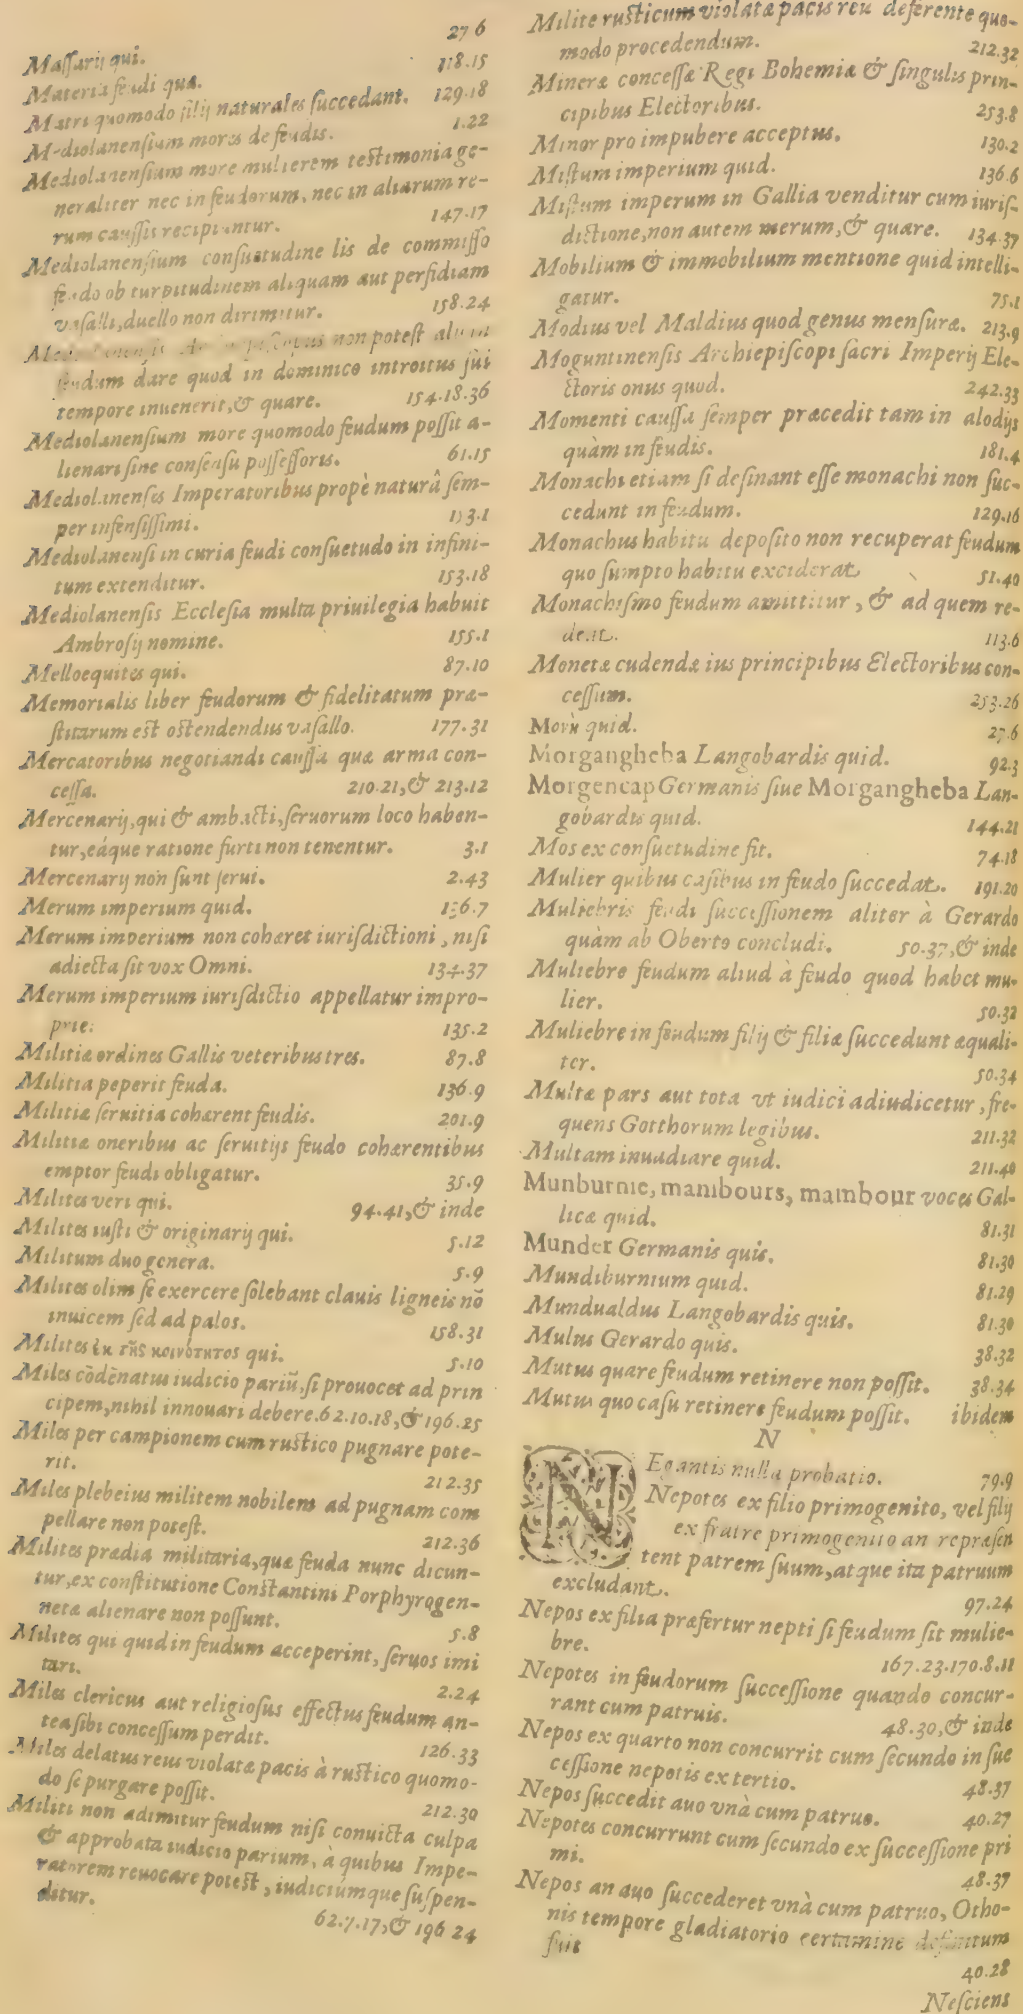 276
Maſſarij qui. 118.15
Materia feudi quæ. 129.18
Matri quomodo filij naturales ſuccedant. 1.22
Mediolanenſium mores de feudis.
Mediolanenſium more mulierem teſtimonia ge-
neraliter nec in feudorum, nec in aliarum re-
rum cauſſis recipiuntur. 147.17
Mediolanenſium conſuetudine lis de commiſſo
feudo ob turpitudinem aliquam aut perfidiam
vaſalli, duello non dirimitur. 158.24
non poteſt
feudum dare quod in dominico introitus ſui
tempore inuenerit, & quare. 154.18.36
Mediolanenſium more quomodo feudum poſſit a-
lienari ſine conſenſu poſſeſſoris. 61.15
Mediolanenſes Imperatoribus propè naturâ ſem-
per infenſiſſimi.
Mediolanenſi in curia feudi conſuetudo in infini-
tum extenditur. 153.18
Mediolanenſis Eccleſia multa priuilegia habuit
Ambroſij nomine. 155.1
Melloequites qui. 87.10
Memorialis liber feudorum & fidelitatum præ-
ſtitarum eſt oſtendendus vaſallo. 177.31
Mercatoribus negotiandi cauſſa quæ arma con-
ceſſa. 210.21, & 213.12
Mercenarij, qui & ambacti, ſeruorum loco haben-
tur, eáque ratione furti non tenentur. 3.1
Mercenarij non ſunt ſerui. 2.43
Merum imperium quid. 136.7
Merum imperium non cohæret iuriſdictioni, niſi
adiecta ſit vox Omni. 134.37
Merum imperium iuriſdictio appellatur impro-
prie. 135.2
Militiæ ordines Gallis veteribus tres. 87.8
Militia peperit feuda. 136.9
Militiæ ſeruitia cohærent feudis. 201.9
Militiæ oneribus ac ſeruitijs feudo cohærentibus
emptor feudi obligatur. 35.9
Milites veri qui. 94.41, & inde
Milites iuſti & originarij qui. 5.12
Militum duo genera. 5.9
Milites olim ſe exercere ſolebant clauis ligneis nō
inuicem ſed ad palos. 158.31
Milites ἐκ τῆς κοινότητος qui. 5.10
Miles cōdēnatus iudicio pariū, ſi prouocet ad prin
cipem, nihil innouari debere. 62.10.18, & 196.25
Miles per campionem cum ruſtico pugnare pote-
rit. 212.35
Miles plebeius militem nobilem ad pugnam com
pellare non poteſt. 212.36
Milites prædia militaria, quæ feuda nunc dicun-
tur, ex conſtitutione Conſtantini Porphyrogen-
netæ alienare non poſſunt. 5.8
Milites qui quid in feudum acceperint, ſeruos imi
tari. 2.24
Miles clericus aut religioſus effectus feudum an-
tea ſibi conceſſum perdit. 126.33
Miles delatus reus violatæ pacis à ruſtico quomo-
do ſe purgare poſſit. 212.30
Militi non adimitur feudum niſi conuicta culpa
& approbata iudicio parium, à quibus Impe-
ratorem reuocare poteſt, iudiciúmque ſuſpen-
ditur. 62.7.17, & 196 24
Milite ruſticum violatæ pacis reū deferente quo-
modo procedendum. 212.32
Mineræ conceſſæ Regi Bohemiæ & ſingulis prin-
cipibus Electoribus. 253.8
Minor pro impubere acceptus. 130.2
Miſtum imperium quid. 136.6
Miſtum imperum in Gallia venditur cum iuriſ-
dictione, non autem merum, & quare. 134.37
Mobilium & immobilium mentione quid intelli-
gatur. 75.1
Modius vel Maldius quod genus menſuræ. 213.9
Moguntinenſis Archiepiſcopi ſacri Imperij Ele-
ctoris onus quod. 242.33
Momenti cauſſa ſemper præcedit tam in alodijs
quàm in feudis. 181.4
Monachi etiam ſi deſinant eſſe monachi non ſuc-
cedunt in feudum. 129.16
Monachus habitu depoſito non recuperat feudum
quo ſumpto habitu exciderat. 51.40
Monachiſmo feudum amittitur, & ad quem re-
deat. 113.6
Monetæ cudendæ ius principibus Electoribus con-
ceſſum. 253.26
quid. 27.6
Morgangheba Langobardis quid. 92.3
Morgencap Germanis ſiue Morgangheba Lan-
gobardis quid. 144.21
Mos ex conſuetudine fit. 74.18
Mulier quibus caſibus in feudo ſuccedat. 191.20
Muliebris feudi ſucceſſionem aliter à Gerardo
quàm ab Oberto concludi. 50.37, & inde
Muliebre feudum aliud à feudo quod habet mu-
lier. 50.32
Muliebre in feudum filij & filiæ ſuccedunt æquali-
ter. 50.34
Multæ pars aut tota vt iudici adiudicetur, fre-
quens Gotthorum legibus. 211.32
Multam inuadiare quid. 211.40
Munburnie, manibours, mainbour voces Gal-
licæ quid. 81.31
Munder Germanis quis. 81.30
Mundiburnium quid. 81.29
Mundualdus Langobardis quis. 81.30
Mutus Gerardo quis. 38.32
Mutus quare feudum retinere non poſſit. 38.34
Mutus quo caſu retinere feudum poſſit. ibidem
N
NEgantis nulla probatio. 79.9
Nepotes ex filio primogenito, vel filij
ex fratre primogenito an repræſen
tent patrem ſuum, atque ita patruum
excludant. 97.24
Nepos ex filia præfertur nepti ſi feudum ſit mulie-
bre. 167.23.170.8.11
Nepotes in feudorum ſucceſſione quando concur-
rant cum patruis. 48.30, & inde
Nepos ex quarto non concurrit cum ſecundo in ſuc
ceſſione nepotis ex tertio. 48.37
Nepos ſuccedit auo vnà cum patruo. 40.27
Nepotes concurrunt cum ſecundo ex ſucceſſione pri
mi. 48.37
Nepos an auo ſuccederet vnà cum patruo, Otho-
nis tempore gladiatorio certamine definitum
fuit 40.28
Neſciens